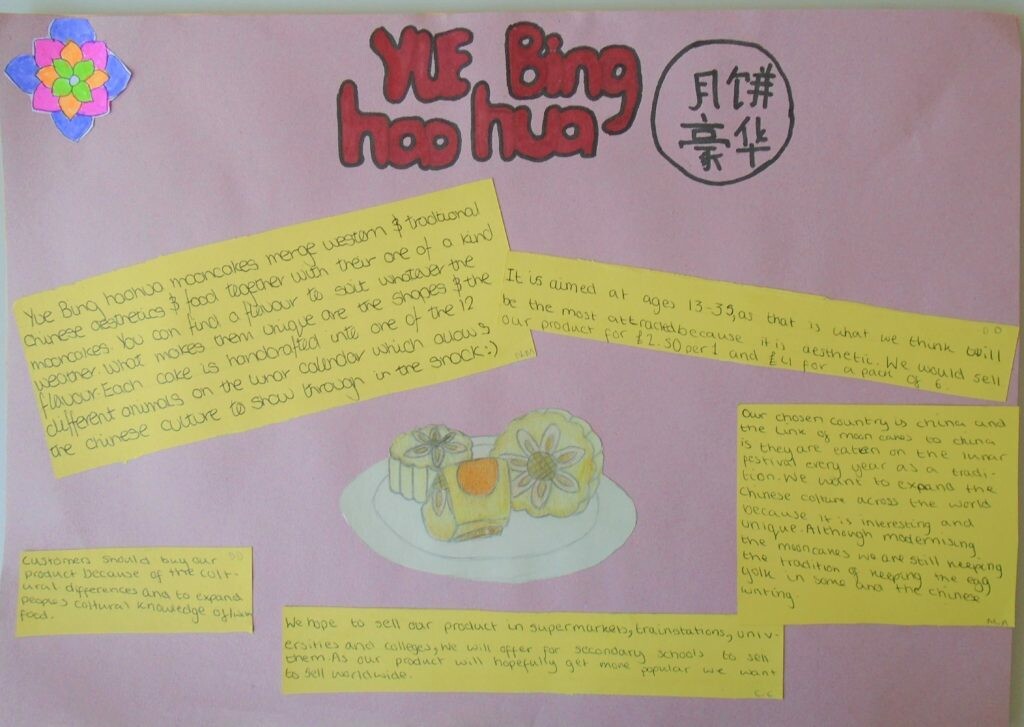 YUE Bing
hao hua
月饼
豪华
Yue Bing haohua mooncakes merge western & traditional
chinese aesthetics & food together with their one of a kind
mooncakes. You can find a flavour to suit whatever the
weather. What makes them unique are the shapes & the
flavour. Each cake is handcrafted into one of the 12
different animals on the lunar calendar which allows
the chinese culture to show through in the snack:)
It is aimed at ages 13-35, as that is what we think will
be the most attracted because it is aesthetic. We would sell
our product for £2.50 per 1 and £11 for a pack of 6.
Our chosen country is china and
the link of moon cakes to china
is they are eaten on the lunar
festival every year as a tradi-
tion. We want to expand the
Chinese culture across the world
because it is interesting and
unique. Although modernising
the mooncakes we are still keeping
the tradition of keeping the egg
yolk in some and the chinese
writing.
M.A
Customers should buy our
product because of the cult-
ural differences and to expand
peoples cultural knowledge of
food.
We hope to sell our product in supermarkets, trainstations, univ-
ersities and colleges, We will offer for secondary schools to sell
them. As our product will hopefully get more popular we want
to sell worldwide.
C.C